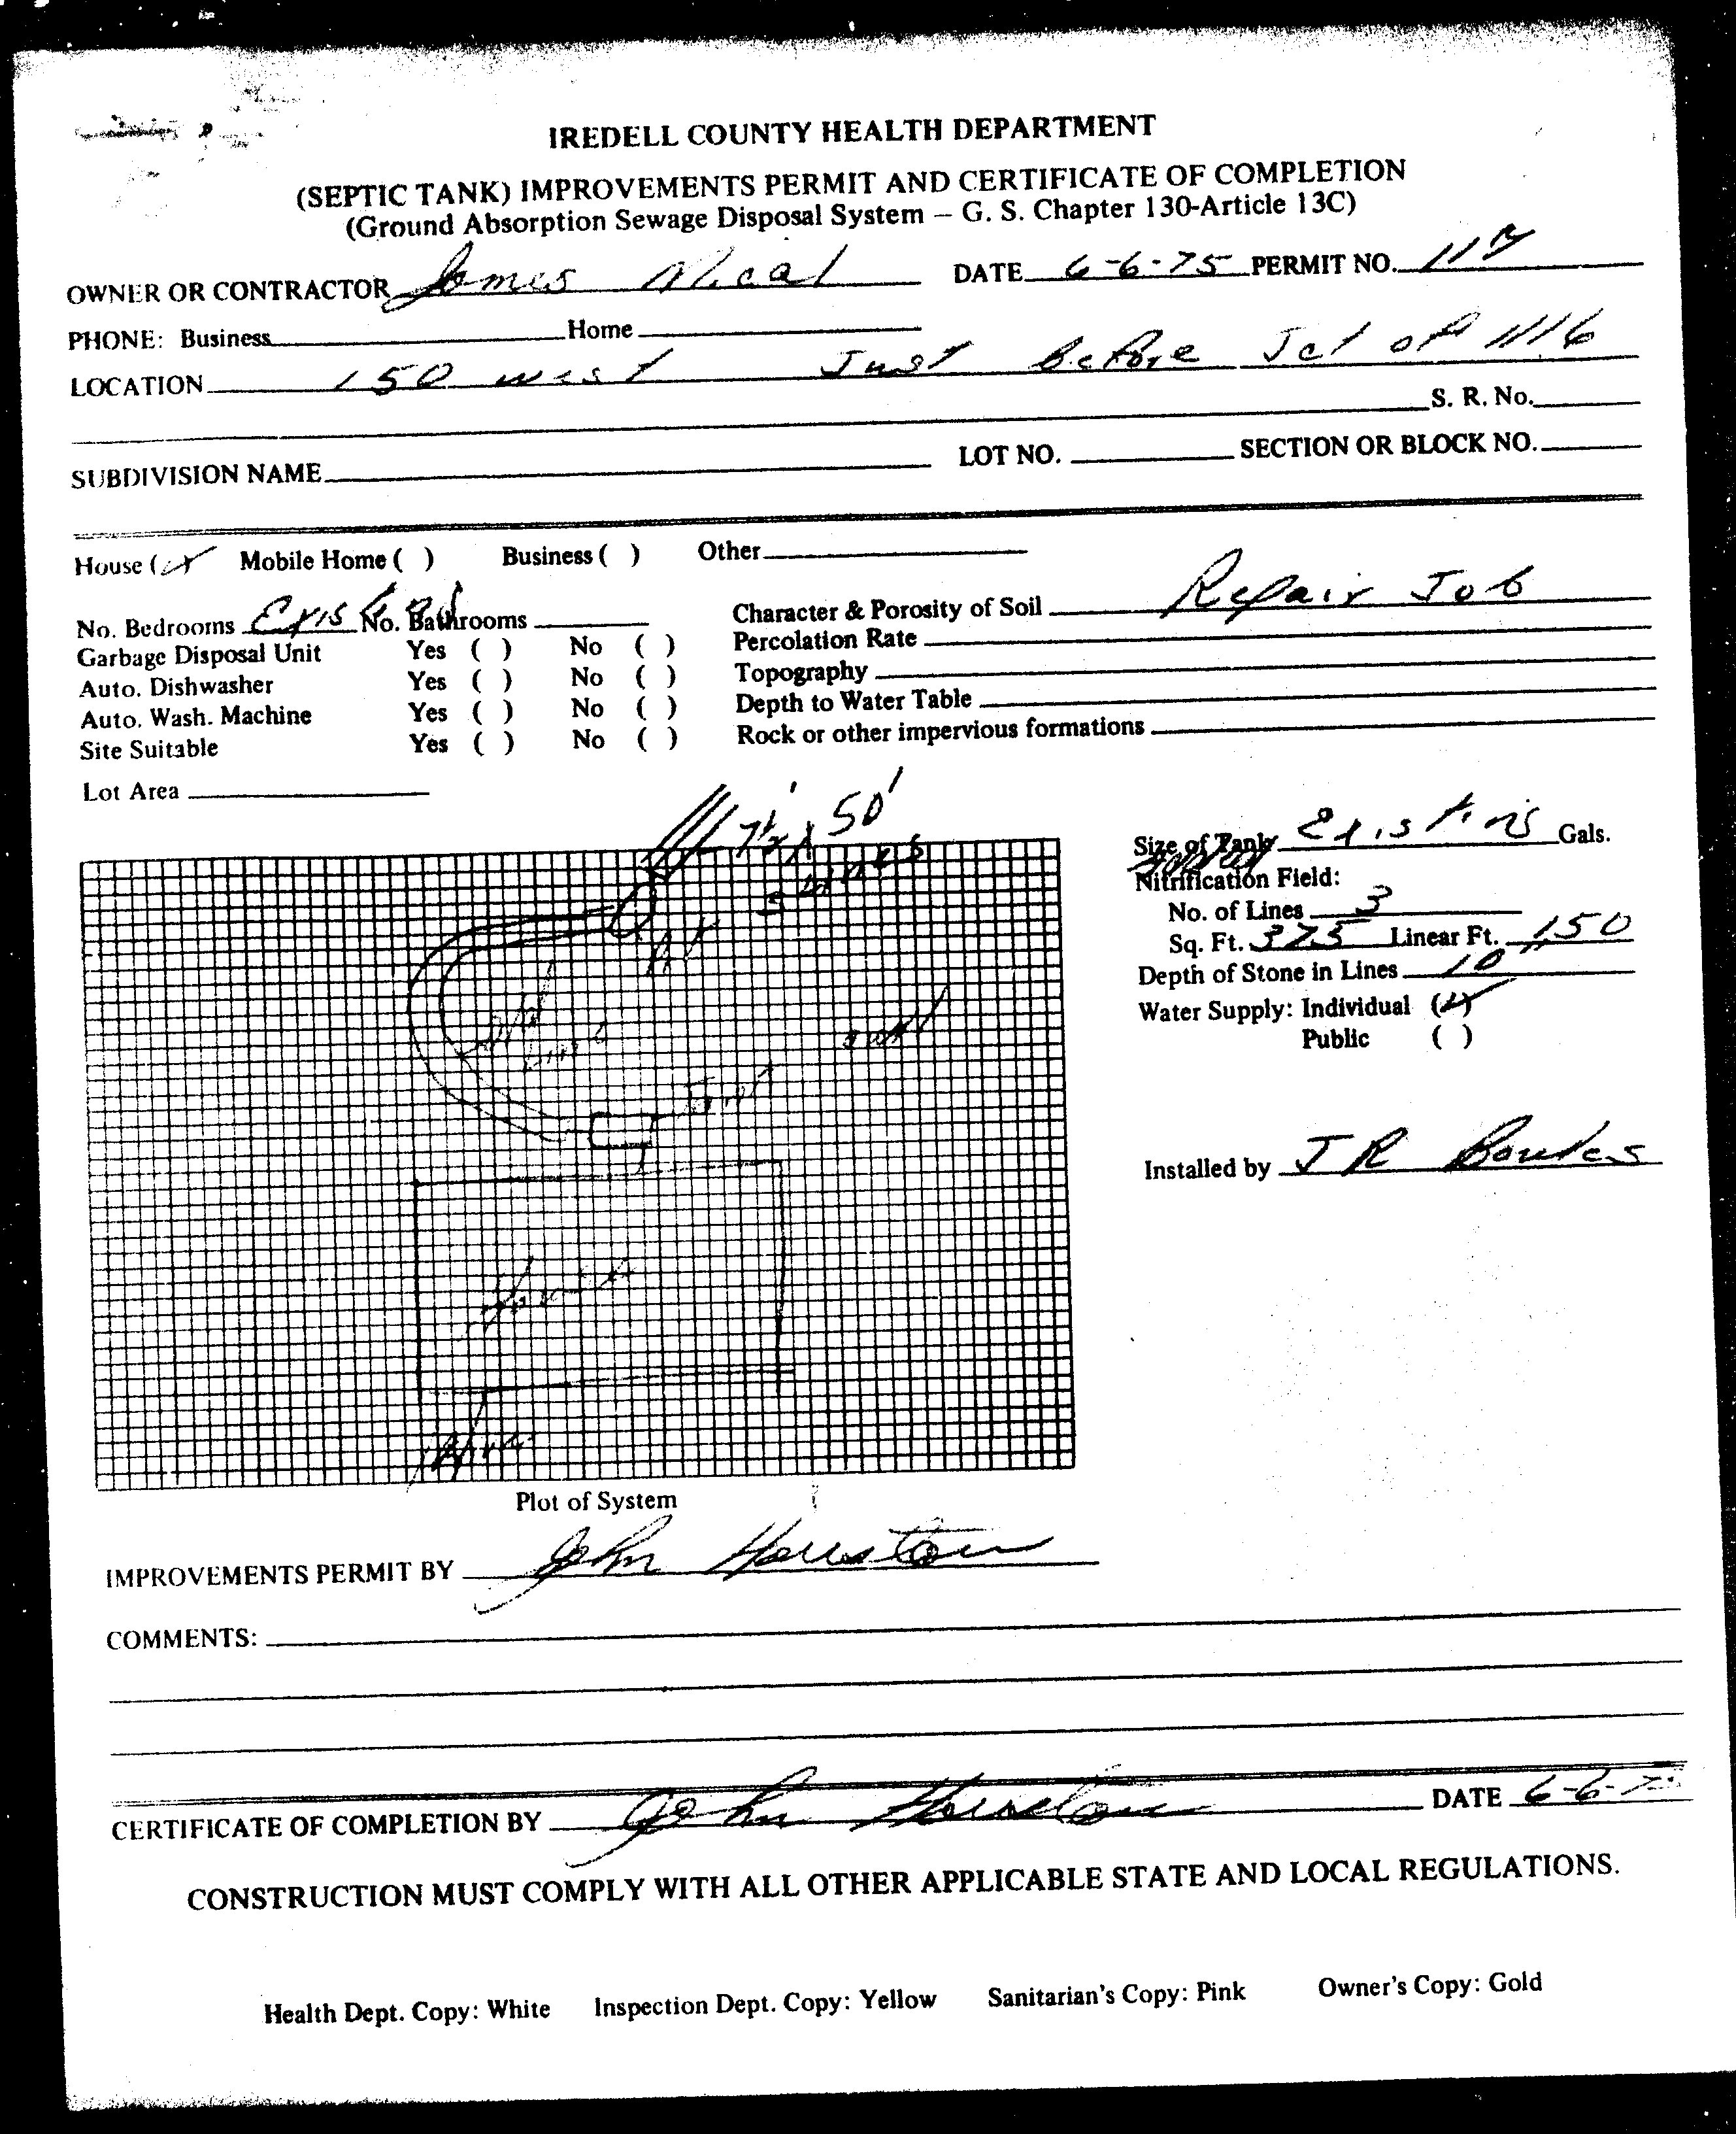 IREDELL COUNTY HEALTH DEPARTMENT
(SEPTIC TANK) IMPROVEMENTS PERMIT AND CERTIFICATE OF COMPLETION
(Ground Absorption Sewage Disposal System – G. S. Chapter 130-Article 13C)
OWNER OR CONTRACTOR James DATE 6-6-75 PERMIT NO.
PHONE: Business Home
LOCATION 150 west Just Before Jct of 1116
S. R. No.
SUBDIVISION NAME LOT NO. SECTION OR BLOCK NO.
House (✓) Mobile Home ( ) Business ( ) Other
No. Bedrooms No. Bathrooms Character & Porosity of Soil Repair Job
Garbage Disposal Unit Yes ( ) No ( ) Percolation Rate
Auto. Dishwasher Yes ( ) No ( ) Topography
Auto. Wash. Machine Yes ( ) No ( ) Depth to Water Table
Site Suitable Yes ( ) No ( ) Rock or other impervious formations
Lot Area
50'
Size of Tank Existing Gals.
Nitrification Field:
No. of Lines 3
Sq. Ft. 375 Linear Ft. 150
Depth of Stone in Lines 10"
Water Supply: Individual (✓)
Public ( )
Old
Line
Installed by J R
House
Plot of System
IMPROVEMENTS PERMIT BY John Houston
COMMENTS:
CERTIFICATE OF COMPLETION BY John Houston DATE 6-6-7
CONSTRUCTION MUST COMPLY WITH ALL OTHER APPLICABLE STATE AND LOCAL REGULATIONS.
Health Dept. Copy: White Inspection Dept. Copy: Yellow Sanitarian's Copy: Pink Owner's Copy: Gold